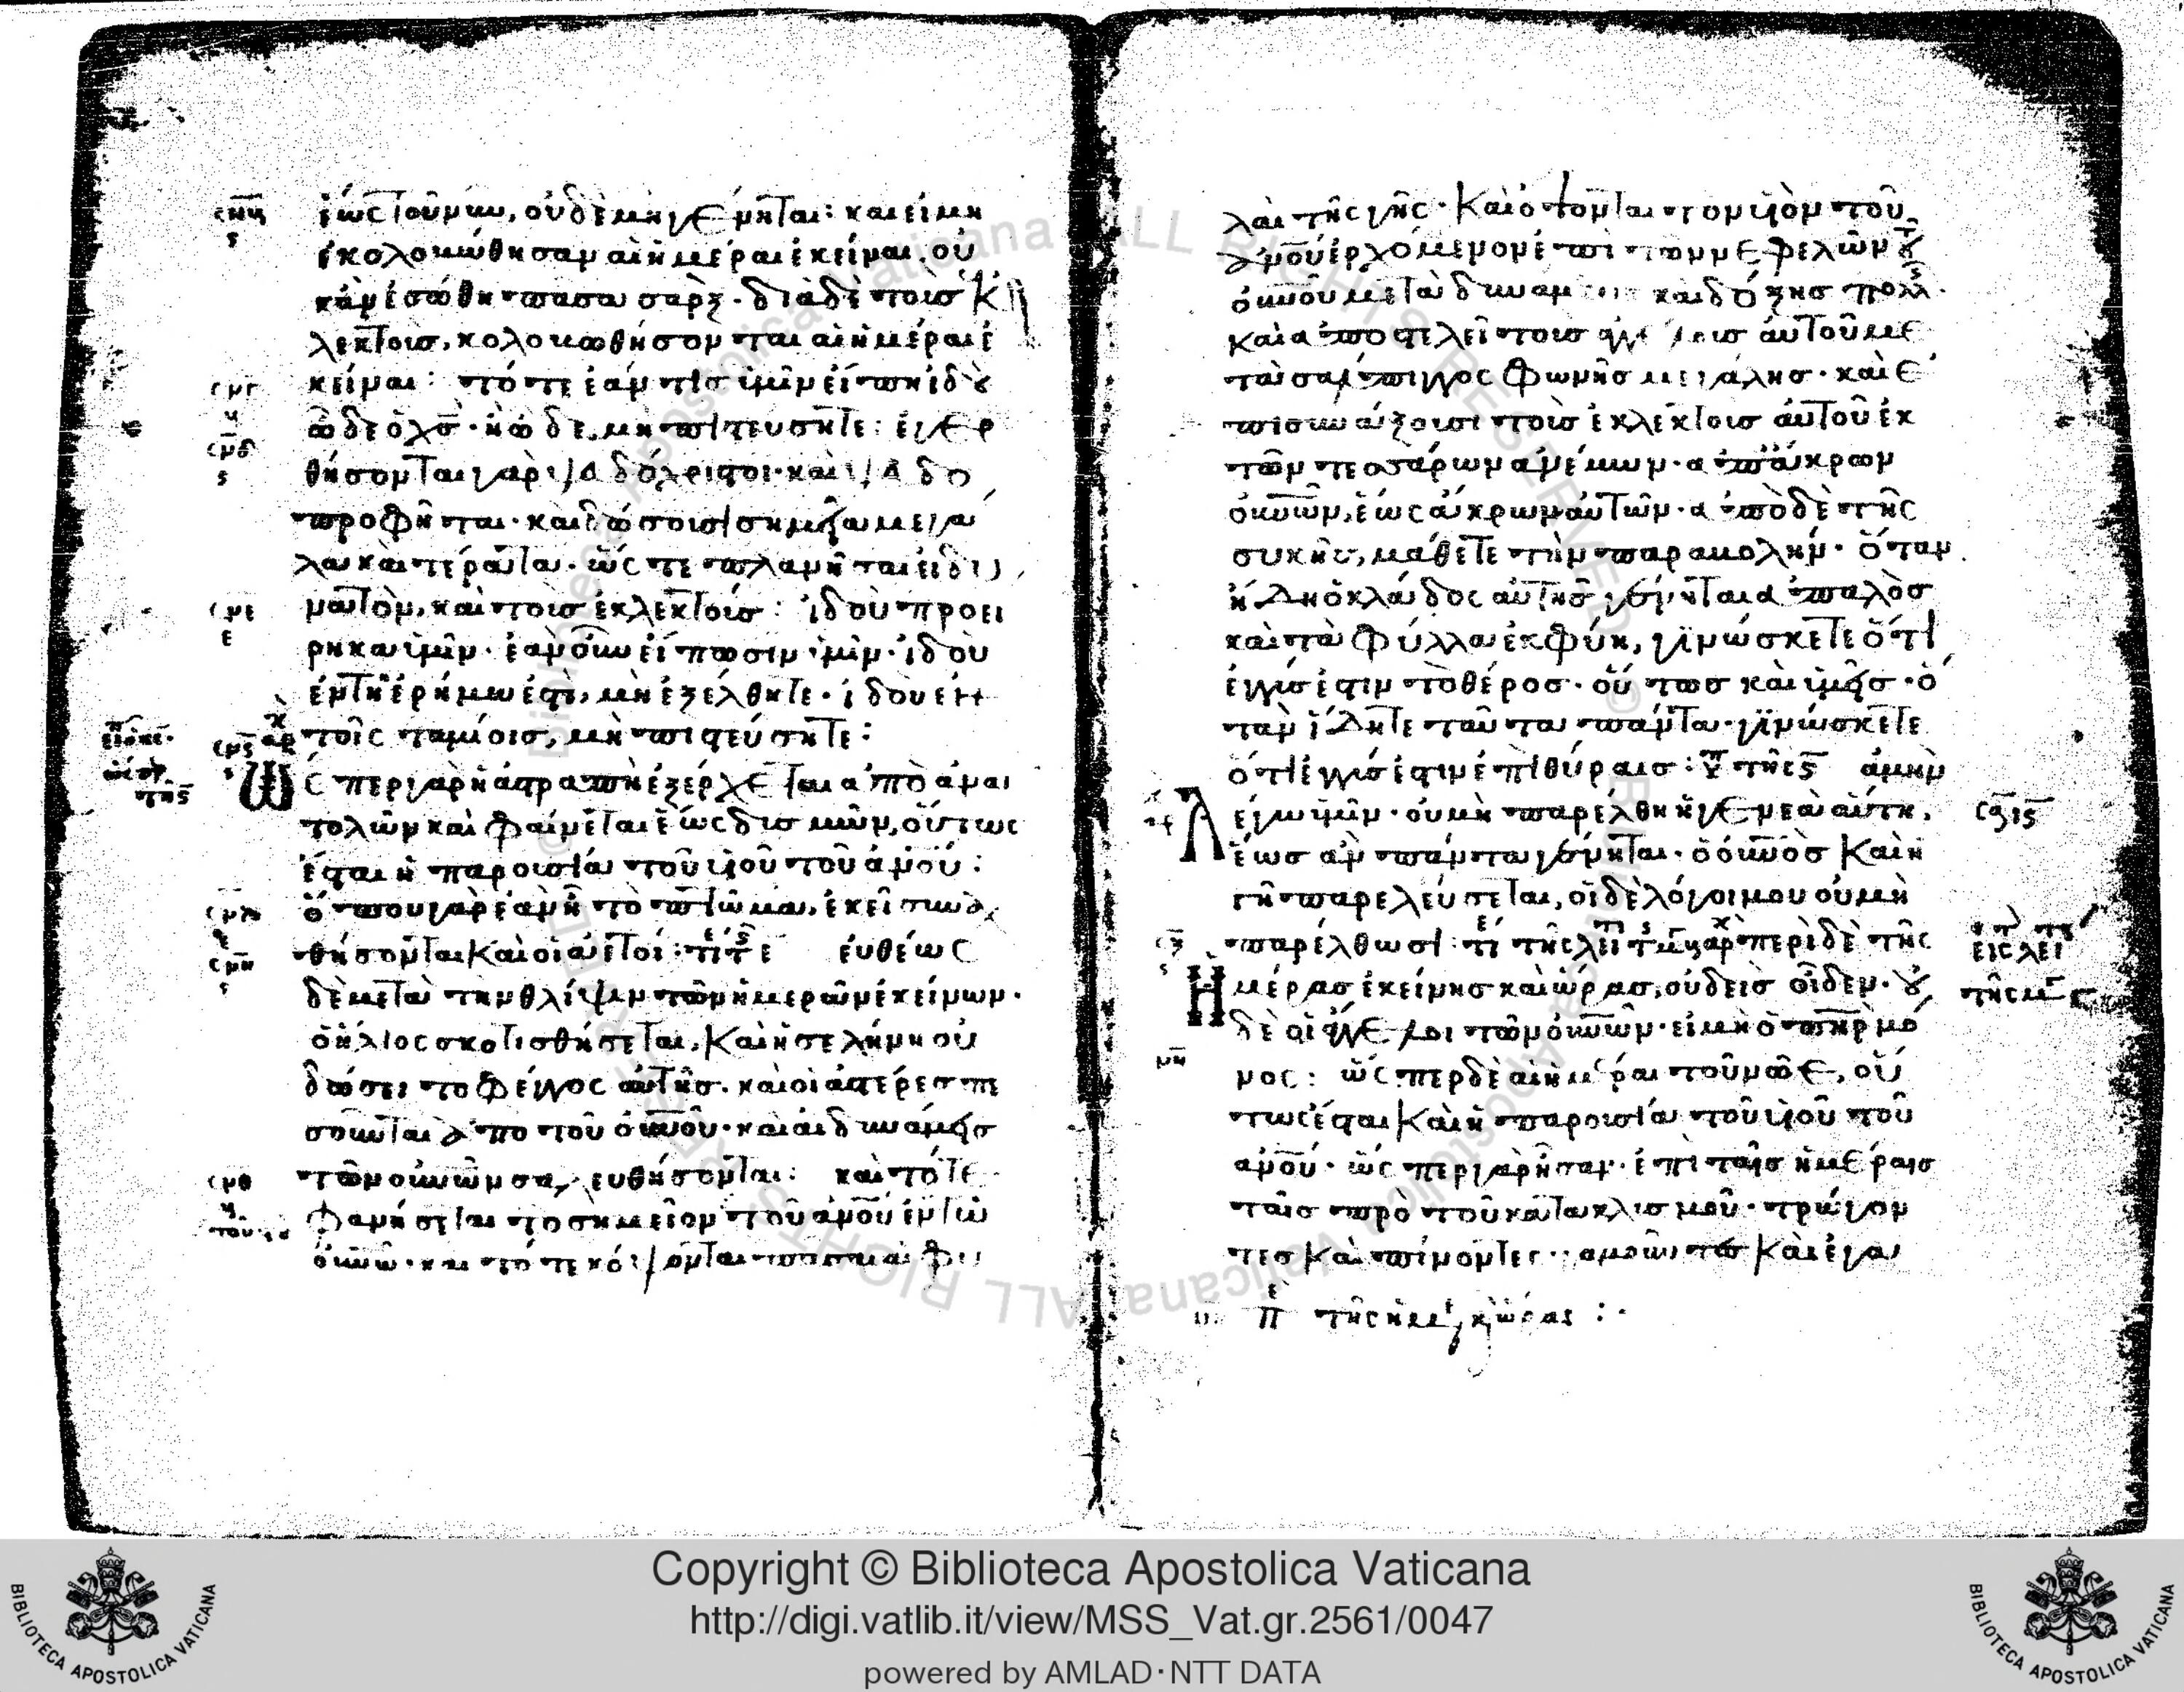 ἕως τοῦ νῦν, οὐδὲ μὴ γένηται: καὶ εἰ μὴ
ἐκολοβώθησαν αἱ ἡμέραι ἐκεῖναι, οὐ
κἂν ἐσώθη πᾶσα σάρξ· διὰ δὲ τοὺς ἐκ
λεκτοὺς, κολοβωθήσονται αἱ ἡμέραι ἐ
κεῖναι: τότε ἐάν τις ὑμῖν εἴπη ἰδοὺ
ὧδε ὁ χς· ἢ ὧδε, μὴ πιστεύσητε: ἐγερ
θήσονται γὰρ ψευδόχριστοι· καὶ ψευδο
προφῆται· καὶ δώσουσι σημεῖα μεγά
λα καὶ τέρατα· ὥστε πλανῆσαι εἰ δυ
νατὸν, καὶ τοὺς ἐκλεκτούς: ἰδοὺ προεί
ρηκα ὑμῖν· ἐὰν οὖν εἴπωσιν ὑμῖν· ἰδοὺ
ἐν τῇ ἐρήμω ἐστὶ, μὴ ἐξέλθητε· ἰδοὺ ἐν
τοῖς ταμίοις, μὴ πιστεύσητε:
Ὥσπερ γὰρ ἡ ἀστραπὴ ἐξέρχεται ἀπὸ ἀνα
τολῶν καὶ φαίνεται ἕως δυσμῶν, οὕτως
ἔσται ἡ παρουσία τοῦ υἱοῦ τοῦ ἀνου:
ὅπου γὰρ ἐὰν ἦ τὸ πτῶμα, ἐκεῖ συναχ
θήσονται καὶ οἱ ἀετοί: εὐθέως
δὲ μετὰ τὴν θλίψιν τῶν ἡμερῶν ἐκείνων·
ὁ ἥλιος σκοτισθήσεται, καὶ ἡ σελήνη οὐ
δώσει τὸ φέγγος αὐτῆς· καὶ οἱ ἀστέρες πε
σοῦνται ἀπὸ τοῦ οὐνου· καὶ αἱ δυνάμεις
τῶν οὐνῶν σαλευθήσονται: καὶ τότε
φανήσεται τὸ σημεῖον τοῦ ἀνου ἐν τῶ
οὐνω· καὶ τότε κόψονται πᾶσαι αἱ φυ
λαὶ τῆς γῆς· καὶ ὄψονται τὸν υἱὸν τοῦ
ἀνου ἐρχόμενον ἐπὶ τῶν νεφελῶν τοῦ
οὐνου μετὰ δυνάμεως καὶ δόξης πολλ·
καὶ ἀποστελεῖ τοὺς ἀγγέλους αὐτοῦ με
τὰ σάλπιγγος φωνῆς μεγάλης· καὶ ἐ
πισυνάξουσι τοὺς ἐκλεκτοὺς αὐτοῦ ἐκ
τῶν τεσσάρων ἀνέμων· ἀπ' ἄκρων
οὐνῶν, ἕως ἄκρων αὐτῶν· ἀπὸ δὲ τῆς
συκῆς, μάθετε τὴν παραβολήν· ὅταν
ἤδη ὁ κλάδος αὐτῆς γένηται ἁπαλὸς
καὶ τὰ φύλλα ἐκφύη, γινώσκετε ὅτι
ἐγγύς ἐστιν τὸ θέρος· οὕτως καὶ ὑμεῖς· ὅ
ταν ἴδητε ταῦτα πάντα· γινώσκετε
ὅτι ἐγγύς ἐστιν ἐπὶ θύραις: ἀμὴν
Λέγω ὑμῖν· οὐ μὴ παρέλθη ἡ γενεὰ αὕτη,
ἕως ἂν πάντα γένηται· ὁ οὐνος καὶ ἡ
γῆ παρελεύσεται, οἱ δὲ λόγοι μου οὐ μὴ
παρέλθωσι: περὶ δὲ τῆς
Ημέρας ἐκείνης καὶ ὥρας, οὐδεὶς οἶδεν· οὐ
δὲ οἱ ἄγγελοι τῶν οὐνῶν· εἰ μὴ ὁ πηρ μό
νος: ὥσπερ δὲ αἱ ἡμέραι τοῦ νῶε, οὕ
τως ἔσται καὶ ἡ παρουσία τοῦ υἱοῦ τοῦ
ἀνου· ὥσπερ γὰρ ἦσαν· ἐπὶ ταῖς ἡμέραις
ταῖς πρὸ τοῦ κατακλισμοῦ· τρώγον
τες καὶ πίνοντες· γαμοῦντες καὶ ἐγα
Copyright © Biblioteca Apostolica Vaticana
http://digi.vatlib.it/view/MSS_Vat.gr.2561/0047
powered by AMLAD·NTT DATA
BIBLIOTECA APOSTOLICA VATICANA
BIBLIOTECA APOSTOLICA VATICANA